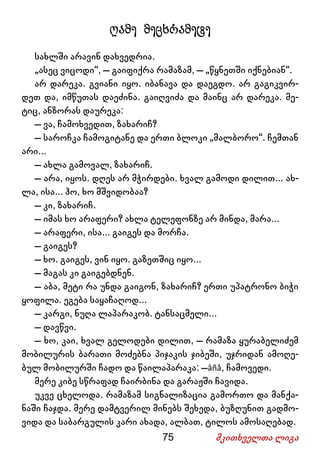 ღამე მეცხრამეტე
სახლში არავინ დახვედრია.
„ასეც ვიცოდი“, — გაიფიქრა რამაზამ, — „წყნეთში იქნებიან“.
არ დარეკა. გვიანი იყო. იბანავა და დაეგდო. არ გაგიკვირ-
დეთ და, იმწუთას დაეძინა. გაიღვიძა და მაინც არ დარეკა. მე-
ტიც, ანზორას დაურეკა:
— ვა, ჩამოხვედით, ზახარიჩ?
— საროჩკა ჩამოგიტანე და ერთი ბლოკი „მალბორო“. ჩემთან
არი...
— ახლა გამოვალ, ზახარიჩ.
— არა, იყოს. დღეს არ მჭირდები. ხვალ გამოდი დილით... ახ-
ლა, ისა... ჰო, ხო მშვიდობაა?
— კი, ზახარიჩ.
— იმას ხო არაფერი? ახლა ტელეფონზე არ მინდა, მარა...
— არაფერი, ისა... გაიგეს და მორჩა.
— გაიგეს?
— ხო. გაიგეს, ვინ იყო. გაზეთშიც იყო...
— მაგას კი გაიგებდნენ.
— აბა, მეტი რა უნდა გაიგონ, ზახარიჩ? ერთი უპატრონო ბიჭი
ყოფილა. ეგება საყაჩაღოდ...
— კარგი, ნუღა ლაპარაკობ. ტანსაცმელი...
— დავწვი.
— ხო, კაი, ხვალ გელოდები დილით, — რამაზა ყურაბელიძემ
მობილურის ბარათი მოძებნა პიჯაკის ჯიბეში, უჯრიდან ამოღე-
ბულ მობილურში ჩადო და წაილაპარაკა: —âñå, ჩამოვედი.
მერე კიბე სწრაფად ჩაირბინა და გარაჟში ჩავიდა.
უკვე ცხელოდა. რამაზამ სიგნალიზაცია გამორთო და მანქა-
ნაში ჩაჯდა. მერე დამტვერილ მინებს შეხედა, ბუზღუნით გადმო-
ვიდა და საბარგულის კარი ახადა, ალბათ, ტილოს ამოსაღებად.
75
მკითხველთა ლიგა